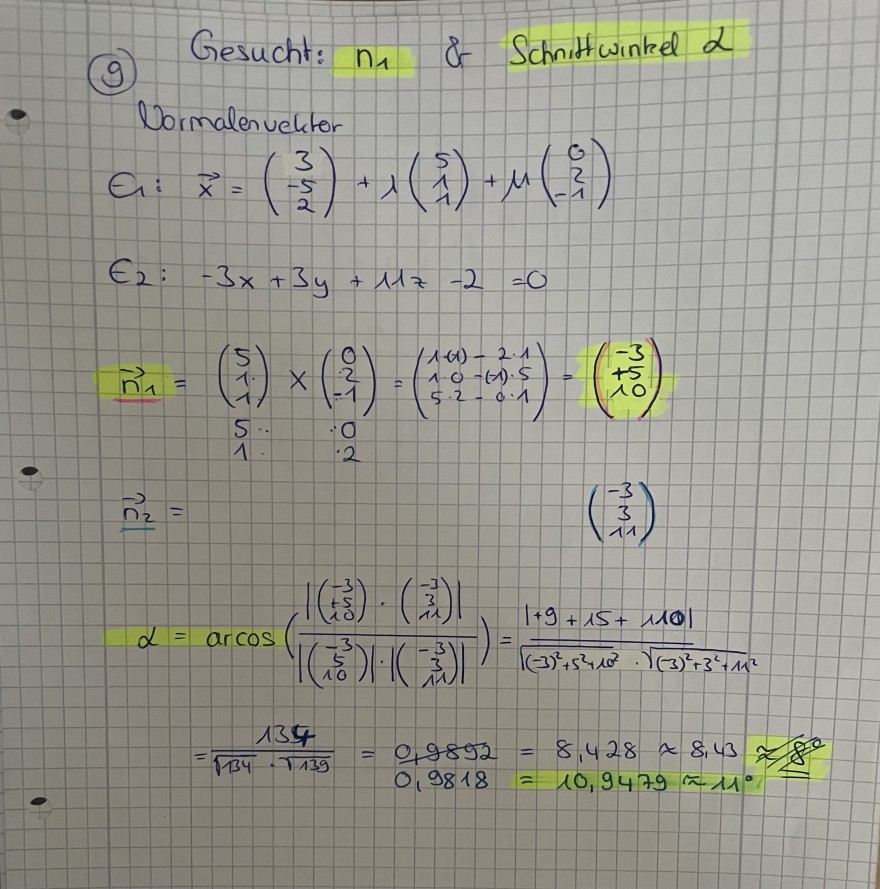 Gesucht: n1 & Schnittwinkel α
9
Normalenvektor
E1: x⃗ = (3 -5 2) + λ (5 1 1) + μ (0 2 -1)
E2: -3x + 3y + 11z - 2 = 0
n⃗1 = (5 1 1) × (0 2 -1) = (1·(-1) - 2·1 1·0 - (-1)·5 5·2 - 0·1) = (-3 +5 10)
5 · ·0
1 · ·2
n⃗2 = (-3 3 11)
α = arcos( |(-3 +5 10) · (-3 3 11)| / |(-3 5 10)| · |(-3 3 11)| ) = |+9 + 15 + 110| / √(-3)²+5²+10² · √(-3)²+3²+11²
= 134 / √134 · √139 = 0,9892 = 8,428 ≈ 8,43 ≈ 8°
0,9818 = 10,9479 ≈ 11°